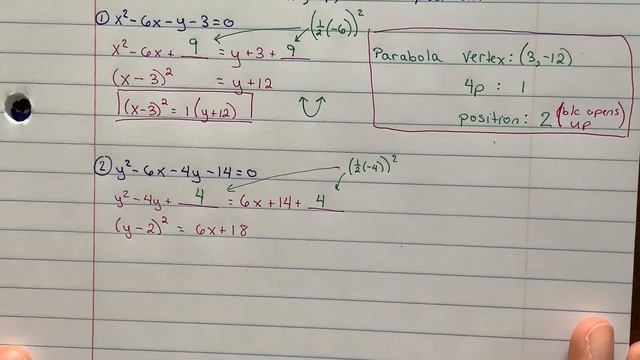 ① x² - 6x - y - 3 = 0
(½(-6))²
x² - 6x + 9 = y + 3 + 9
(x - 3)² = y + 12
(x-3)² = 1(y+12)
Parabola vertex: (3, -12)
4p : 1
position: 2 (b/c opens up)
② y² - 6x - 4y - 14 = 0
(½(-4))²
y² - 4y + 4 = 6x + 14 + 4
(y - 2)² = 6x + 18